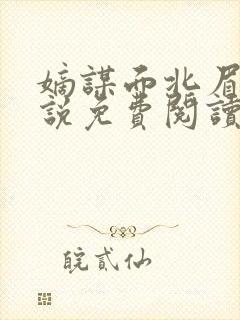 嫡謀而北眉
說免費閱讀
皖貳仙